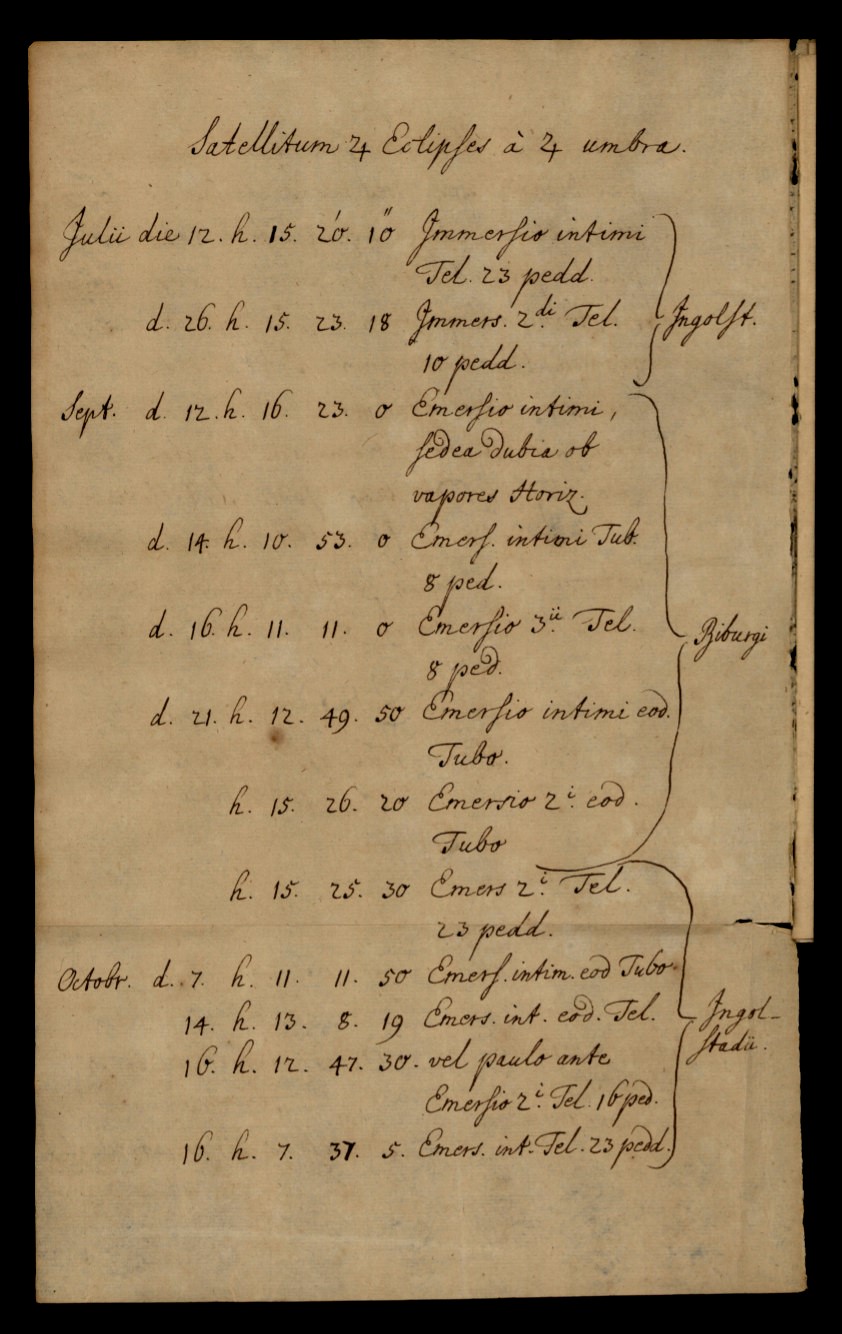 Satellitum ♃ Eclipses à ♃ umbra.
Julii die 12. h. 15. 20́. 10̋ Immersio intimi
Tel. 23 pedd.
d. 26. h. 15. 23. 18 Immers. 2.di Tel. Ingolst.
10 pedd.
Sept. d. 12. h. 16. 23. 0 Emersio intimi,
sed ea dubia ob
vapores Horiz.
d. 14. h. 10. 53. 0 Emers. intimi Tub.
8 ped.
d. 16. h. 11. 11. 0 Emersio 3.ii Tel. Biburgi
8 ped.
d. 21. h. 12. 49. 50 Emersio intimi eod.
Tubo.
h. 15. 26. 20 Emersio 2.i eod.
Tubo
h. 15. 25. 30 Emers 2.i Tel.
23 pedd.
Octobr. d. 7. h. 11. 11. 50 Emers. intim. eod Tubo
14. h. 13. 8. 19 Emers. int. eod. Tel. Ingol-
stadii.
16. h. 12. 47. 30. vel paulo ante
Emersio 2.i Tel. 16 ped.
16. h. 7. 37. 5. Emers. int. Tel. 23 pedd.